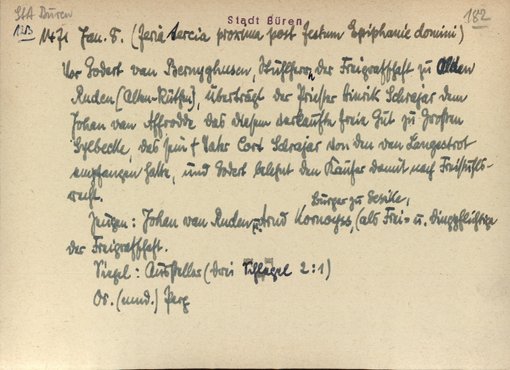 StA Büren
Stadt Büren
182
1471 Jan. 8. (feria tercia proxima post festum Epiphanie domini)
Vor Godert van Bernynghusen, Stuhlherrn der Freigrafschaft zu Alden
Ruden (Alten-Rüthen), überträgt der Priester Hinrik Schrajar dem
Johan van Affrodde das diesem verkaufte freie Gut zu Großen
Sylbecke, das sein † Vater Cort Schrajar von den van Langestrot
empfangen hatte, und Godert belehnt den Käufer damit nach Freistuhls-
recht.
Zeugen: Johan van Ruden, Arnd Kornoyss, Bürger zu Geseke, (als Frei- u. Dingpflichtige
der Freigrafschaft.
Siegel: Aussteller (drei Schlägel 2:1)
Or. (mnd.) Perg